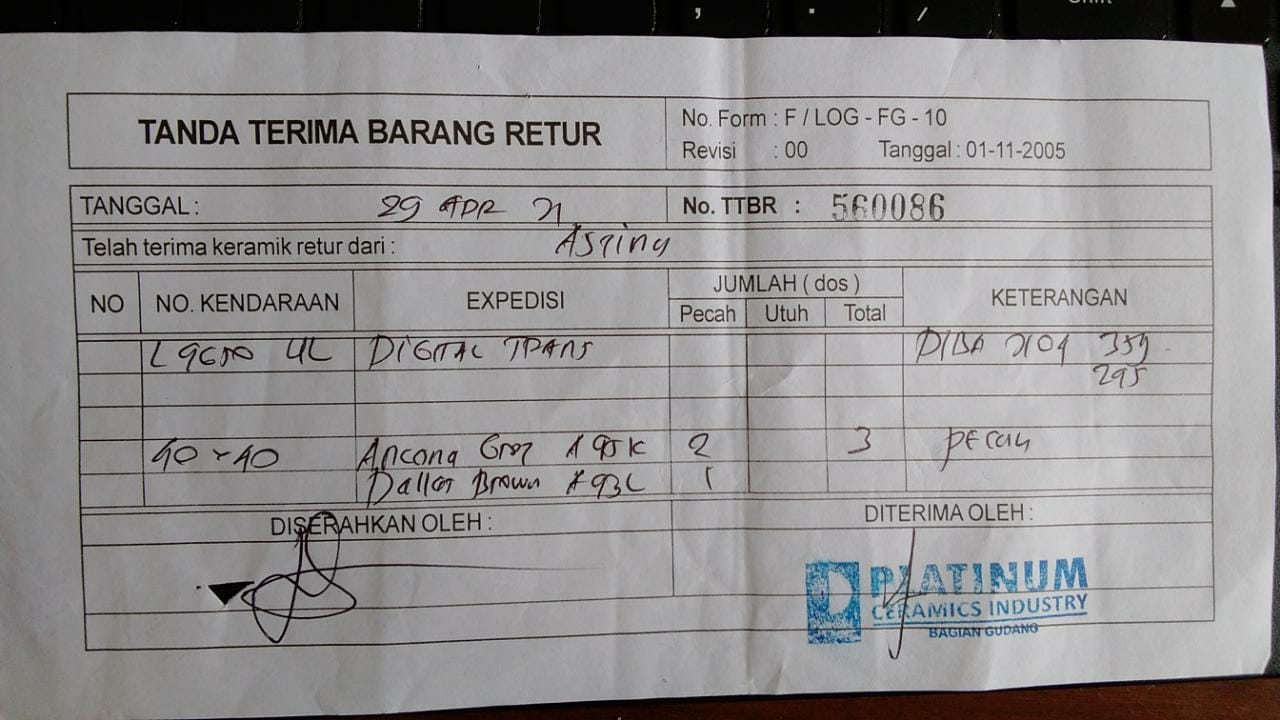 Shift
TANDA TERIMA BARANG RETUR
No. Form : F / LOG - FG - 10
Revisi : 00 Tanggal : 01-11-2005
TANGGAL : 29 APR 21
No. TTBR : 560086
Telah terima keramik retur dari :
NO NO. KENDARAAN EXPEDISI JUMLAH ( dos ) KETERANGAN
Pecah Utuh Total
DIGITAL TRANS 359
295
40 x 40 Ancona Grey 2 3 pecah
Dallas Brown 1
DISERAHKAN OLEH :
DITERIMA OLEH :
PLATINUM
CERAMICS INDUSTRY
BAGIAN GUDANG